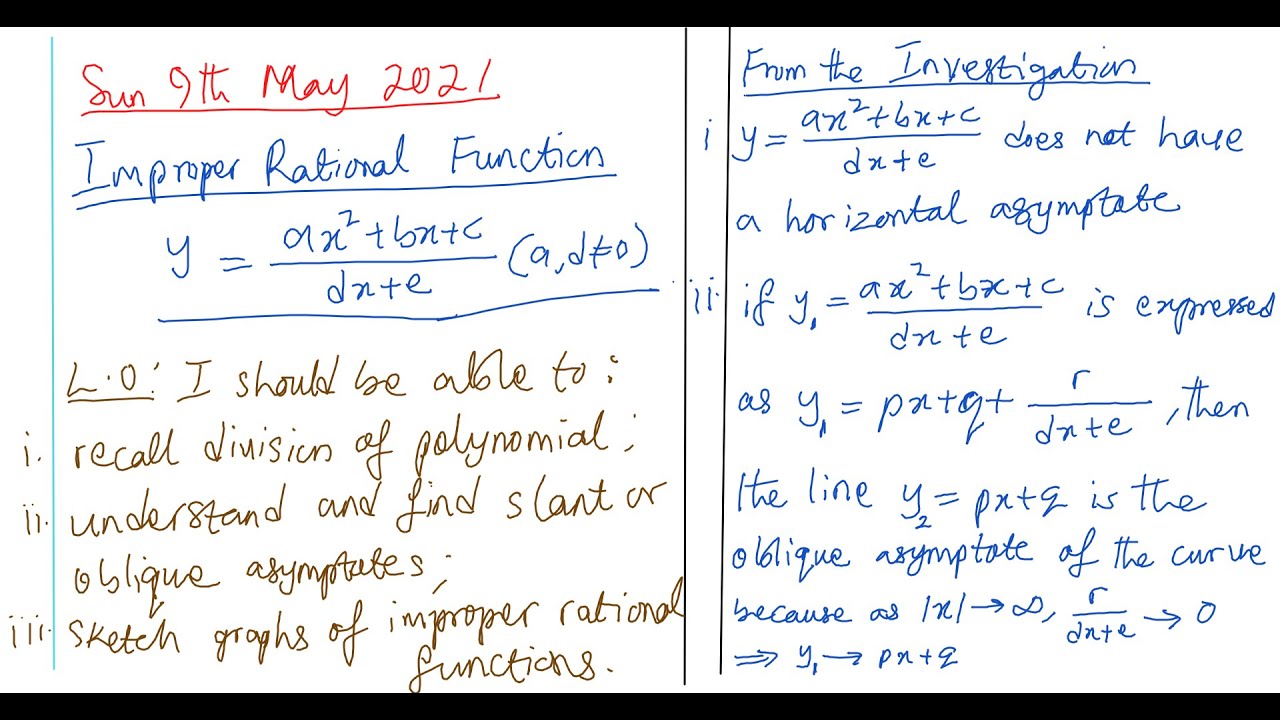 Sun 9th May 2021
Improper Rational Function
y = \frac{ax²+bx+c}{dx+e} (a,d≠0)
L.O: I should be able to:
i. recall division of polynomial;
ii. understand and find slant or
oblique asymptotes;
iii. sketch graphs of improper rational
functions.
From the Investigation
i y = \frac{ax²+bx+c}{dx+e} does not have
a horizontal asymptote
ii. if y₁ = \frac{ax²+bx+c}{dx+e} is expressed
as y₁ = px+q+ \frac{r}{dx+e}, then
the line y₂ = px+q is the
oblique asymptote of the curve
because as |x| → ∞, \frac{r}{dx+e} → 0
⇒ y₁ → px+q